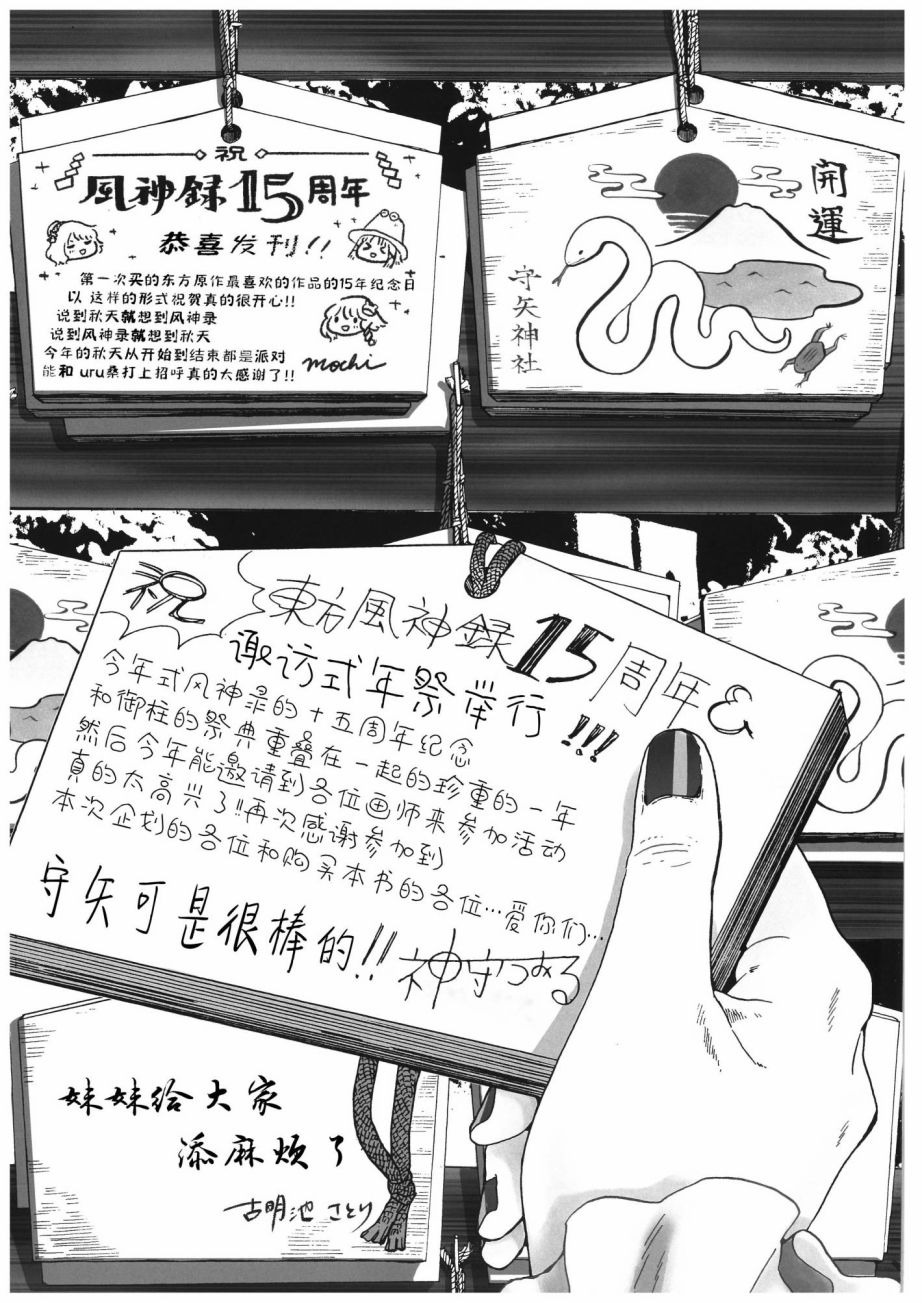 祝
風神録15周年
恭喜发刊!!
第一次买的东方原作最喜欢的作品的15年纪念日
以 这样的形式祝贺真的很开心!!
说到秋天就想到风神录
说到风神录就想到秋天
今年的秋天从开始到结束都是派对
能和 uru桑打上招呼真的大感谢了!!
mochi
開運
守矢神社
祝
東方風神録15周年&
诹访式年祭举行!!!
今年式风神录的十五周年纪念
和御柱的祭典重叠在一起的珍重的一年
然后今年能邀请到各位画师来参加活动
真的太高兴了!!再次感谢参加到
本次企划的各位和购买本书的各位…爱你们…
守矢可是很棒的!!
神守
妹妹给大家
添麻烦了
古明池 さとり